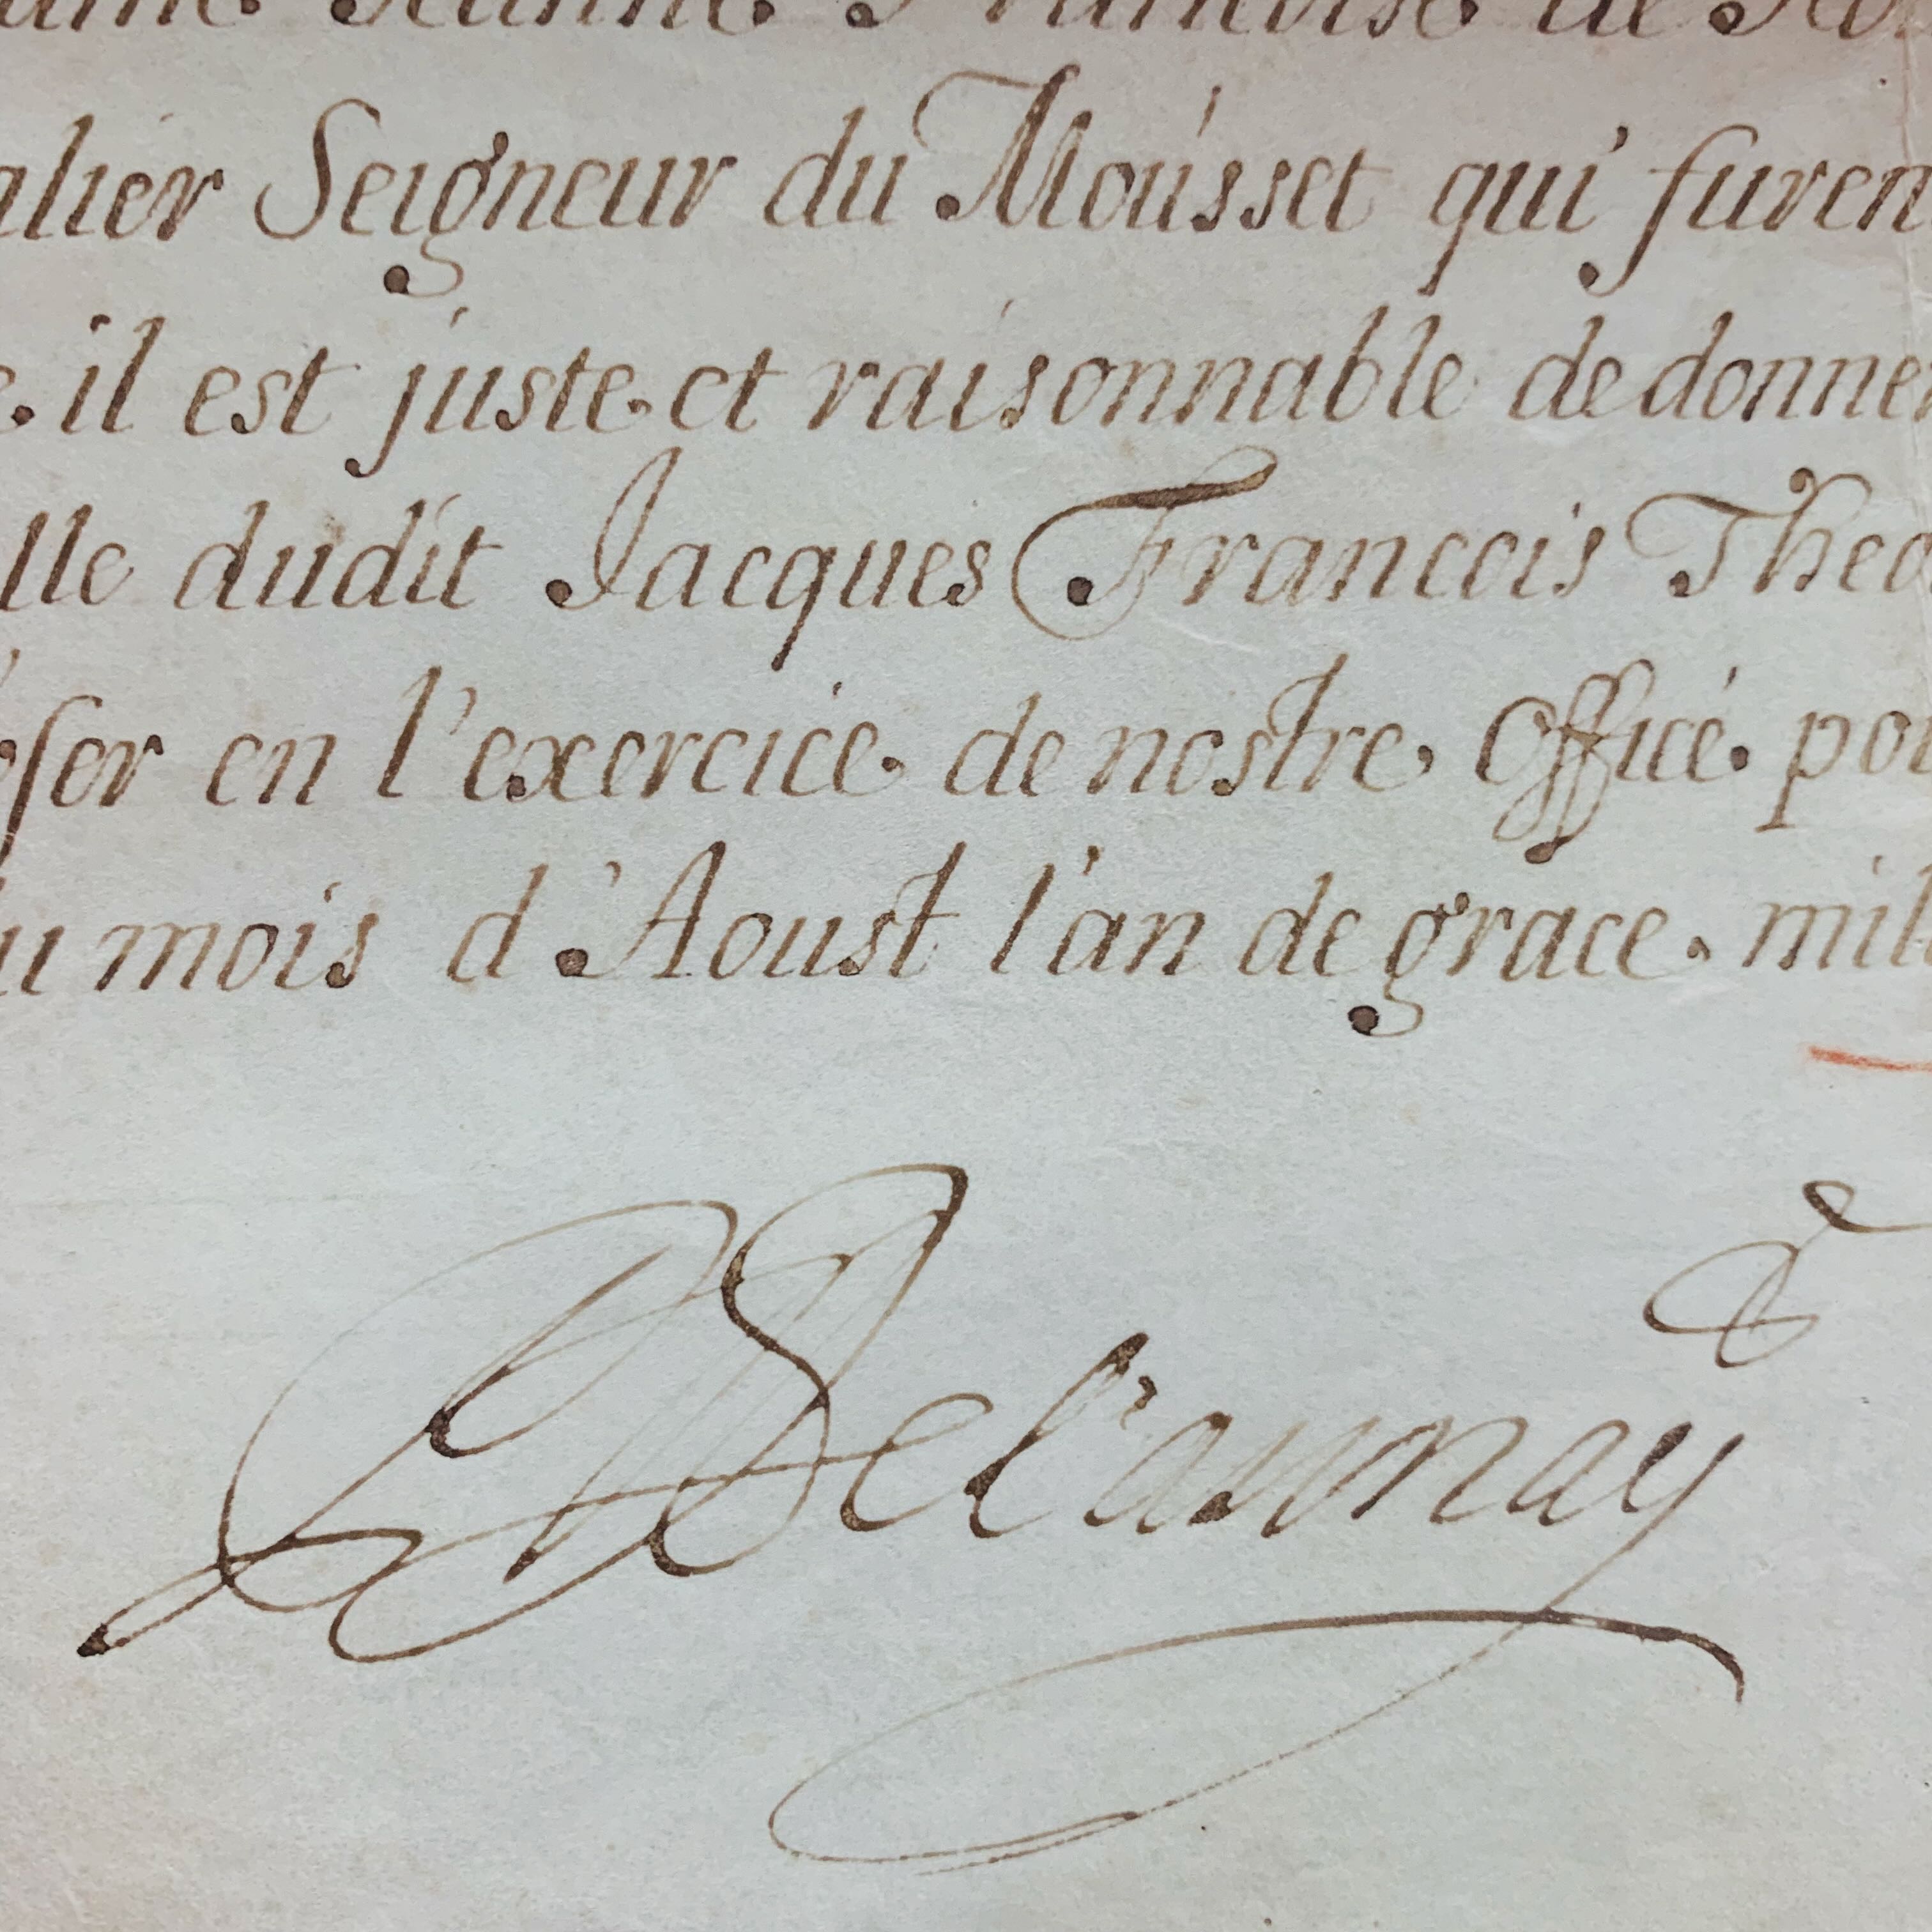 Jeanne. Francoise. de
alier Seigneur du Mousset qui furen
e. il est juste. et raisonnable de donner
lle dudit Jacques Francois Theo
eser en l'exercice. de nostre. Office. pou
u mois d'Aoust l'an de grace. mil
Del'aunay